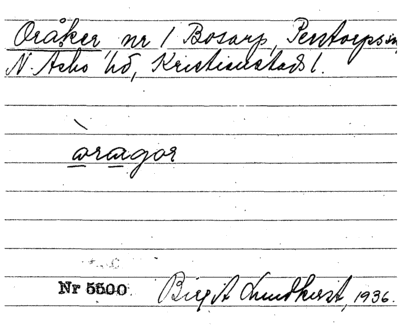 Oråker nr 1 Bosarp, Perstorps sn,
N. Åsbo hd, Kristianstads l.
òragor
Nr 5500
Birgit Lundkvist, 1936.